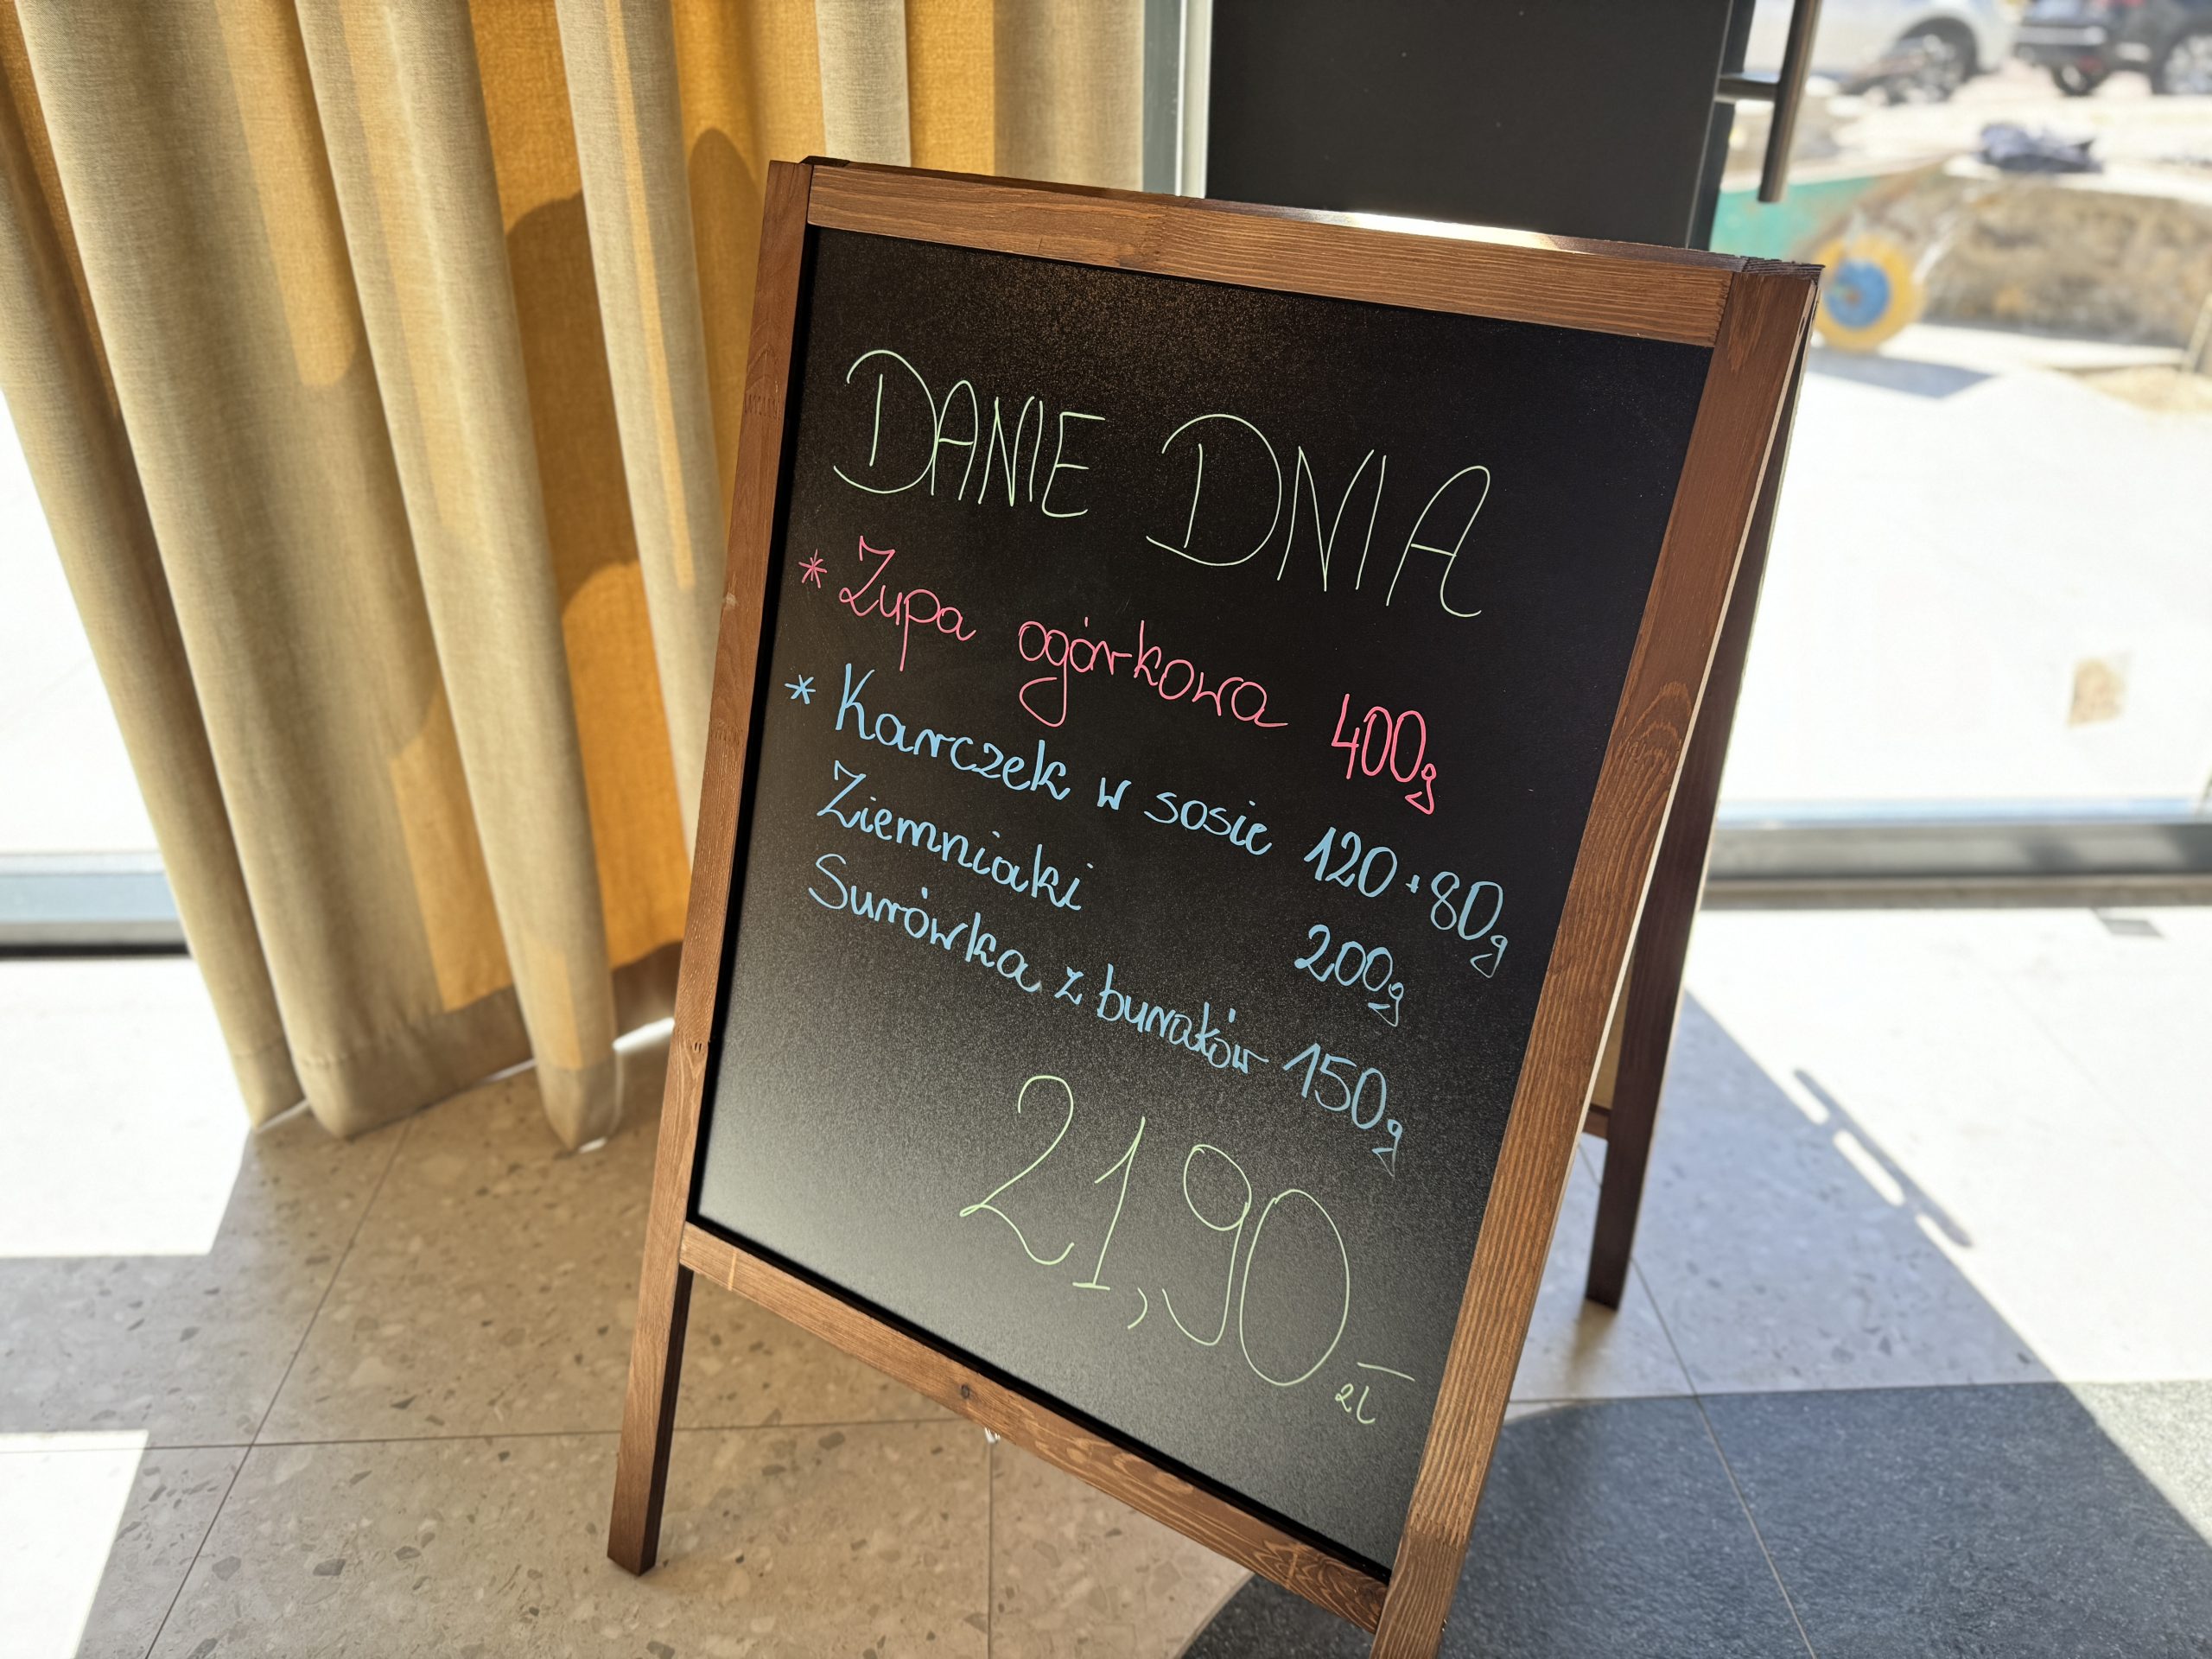 DANIE DNIA
* Zupa ogórkowa 400g
* Karczek w sosie 120+80g
Ziemniaki 200g
Surówka z buraków 150g
21,90 zł